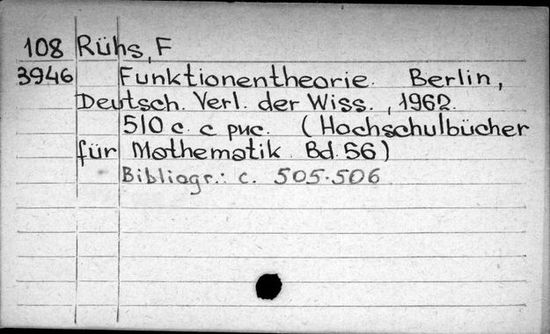 108 Rühs, F
3946 Funktionentheorie. Berlin,
Deutsch. Verl. der Wiss., 1962.
510 с. с рис. (Hochschulbücher
für Mathematik. Bd. 56)
Bibliogr.: с. 505-506